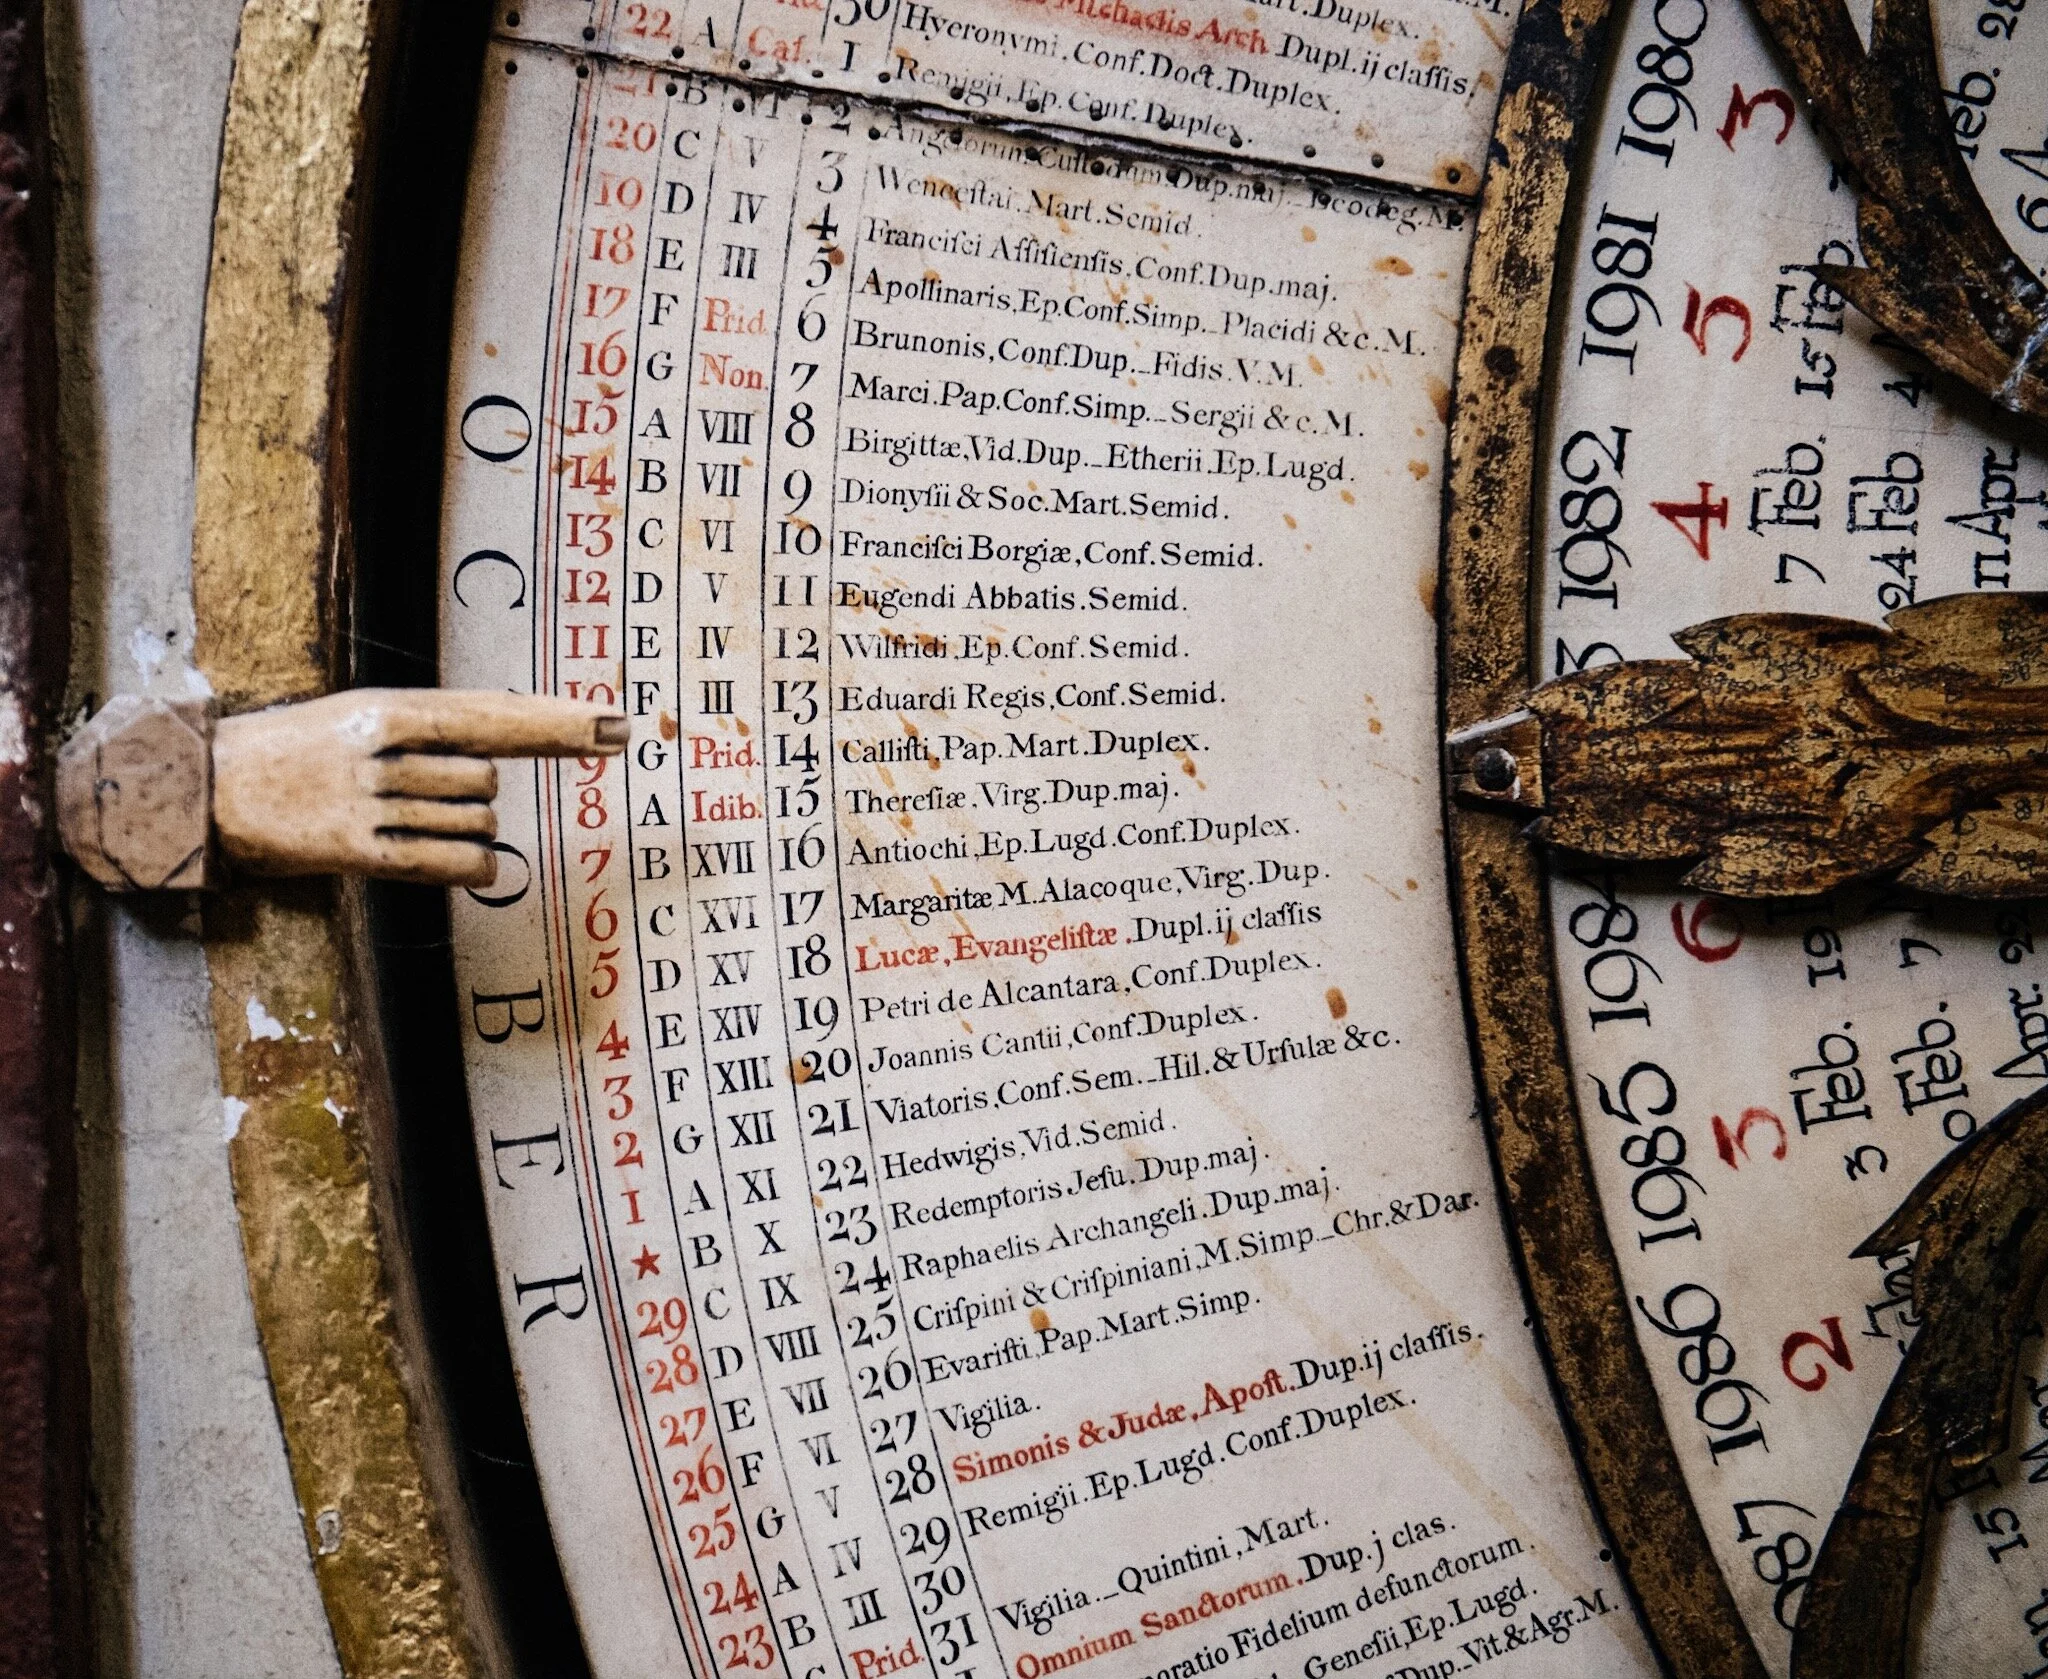 Duplex.
22 A Cal. 1 Michaelis Arch. Dupl.ij claſſis.
30 Hyeronymi.Conf.Doct.Duplex.
21 B VI 2 Remigii,Ep.Conf.Duplex.
20 C V 3 Angelorum Cuſtodum.Dup.maj._Leodeg.M.
19 D IV 4 Venceſlai.Mart.Semid.
18 E III 5 Franciſci Aſſiſienſis,Conf.Dup.maj.
17 F Prid. 6 Apollinaris,Ep.Conf.Simp._Placidi & c.M.
16 G Non. 7 Brunonis,Conf.Dup._Fidis.V.M.
15 A VIII 8 Marci.Pap.Conf.Simp._Sergii & c.M.
14 B VII 9 Birgittæ,Vid.Dup._Etherii.Ep.Lugd.
13 C VI 10 Dionyſii & Soc.Mart.Semid.
12 D V 11 Franciſci Borgiæ,Conf.Semid.
11 E IV 12 Eugendi Abbatis.Semid.
10 F III 13 Wilfridi,Ep.Conf.Semid.
9 G Prid. 14 Eduardi Regis,Conf.Semid.
8 A Idib. 15 Calliſti,Pap.Mart.Duplex.
7 B XVII 16 Thereſiæ,Virg.Dup.maj.
6 C XVI 17 Antiochi,Ep.Lugd.Conf.Duplex.
5 D XV 18 Margaritæ M.Alacoque,Virg.Dup.
4 E XIV 19 Lucæ,Evangeliſtæ.Dupl.ij claſſis
3 F XIII 20 Petri de Alcantara,Conf.Duplex.
2 G XII 21 Joannis Cantii,Conf.Duplex.
1 A XI 22 Viatoris,Conf.Sem._Hil.&Urſulæ &c.
★ B X 23 Hedwigis,Vid.Semid.
29 C IX 24 Redemptoris Jeſu.Dup.maj.
28 D VIII 25 Raphaelis Archangeli.Dup.maj.
27 E VII 26 Criſpini & Criſpiniani,M.Simp._Chr.&Dar.
26 F VI 27 Evariſti,Pap.Mart.Simp.
25 G V 28 Vigilia.
24 A IV 29 Simonis & Judæ,Apoſt.Dup.ij claſſis.
23 B III 30 Remigii.Ep.Lugd.Conf.Duplex.
Prid. 31
Vigilia._Quintini,Mart.
Omnium Sanctorum.Dup.j clas.
Fidelium defunctorum.
Geneſii,Ep.Lugd.
Dup._Vit.&Agr.M.
OCTOBER
1980 3
1981 5 15 Feb
1982 4 7 Feb. 24 Feb 11 Apr.
1984 6 19 7
1985 3 3 Feb. Feb. Apr.
1986 2